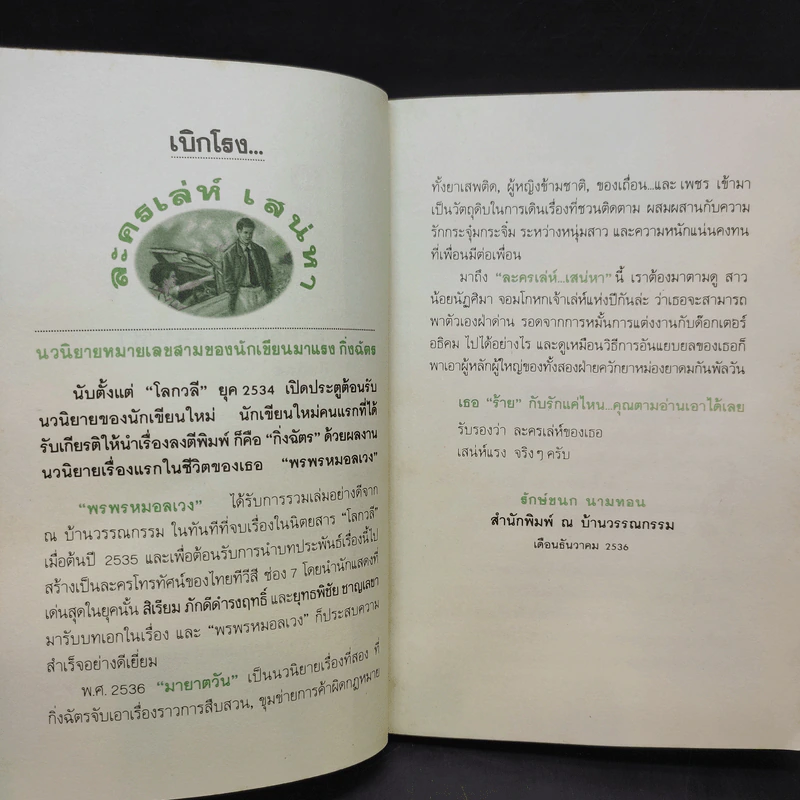 เบิกโรง...
ละครเล่ห์ เสน่หา
นวนิยายหมายเลขสามของนักเขียนมาแรง กิ่งฉัตร
นับตั้งแต่ “โลกวลี” ยุค 2534 เปิดประตูต้อนรับ
นวนิยายของนักเขียนใหม่ นักเขียนใหม่คนแรกที่ได้
รับเกียรติให้นำเรื่องลงตีพิมพ์ ก็คือ “กิ่งฉัตร” ด้วยผลงาน
นวนิยายเรื่องแรกในชีวิตของเธอ “พรพรหมอลเวง”
“พรพรหมอลเวง” ได้รับการรวมเล่มอย่างดีจาก
ณ บ้านวรรณกรรม ในทันทีที่จบเรื่องในนิตยสาร “โลกวลี”
เมื่อต้นปี 2535 และเพื่อต้อนรับการนำบทประพันธ์เรื่องนี้ไป
สร้างเป็นละครโทรทัศน์ของไทยทีวีสี ช่อง 7 โดยนำนักแสดงที่
เด่นสุดในยุคนั้น สิเรียม ภักดีดำรงฤทธิ์ และยุทธพิชัย ชาญเลขา
มารับบทเอกในเรื่อง และ “พรพรหมอลเวง” ก็ประสบความ
สำเร็จอย่างดีเยี่ยม
พ.ศ. 2536 “มายาตวัน” เป็นนวนิยายเรื่องที่สอง ที่
กิ่งฉัตรจับเอาเรื่องราวการสืบสวน, ขุมข่ายการค้าผิดกฎหมาย
ทั้งยาเสพติด, ผู้หญิงข้ามชาติ, ของเถื่อน...และ เพชร เข้ามา
เป็นวัตถุดิบในการเดินเรื่องที่ชวนติดตาม ผสมผสานกับความ
รักกระจุ๋มกระจิ๋ม ระหว่างหนุ่มสาว และความหนักแน่นคงทน
ที่เพื่อนมีต่อเพื่อน
มาถึง “ละครเล่ห์...เสน่หา” นี้ เราต้องมาตามดู สาว
น้อยนัฏศิมา จอมโกหกเจ้าเล่ห์แห่งปีกันล่ะ ว่าเธอจะสามารถ
พาตัวเองฝ่าด่าน รอดจากการหมั้นการแต่งงานกับด๊อกเตอร์
อธิคม ไปได้อย่างไร และดูเหมือนวิธีการอันแยบยลของเธอก็
พาเอาผู้หลักผู้ใหญ่ของทั้งสองฝ่ายควักยาหม่องยาดมกันพัลวัน
เธอ “ร้าย” กับรักแค่ไหน...คุณตามอ่านเอาได้เลย
รับรองว่า ละครเล่ห์ของเธอ
เสน่ห์แรง จริงๆ ครับ
รักษ์ชนก นามทอน
สำนักพิมพ์ ณ บ้านวรรณกรรม
เดือนธันวาคม 2536